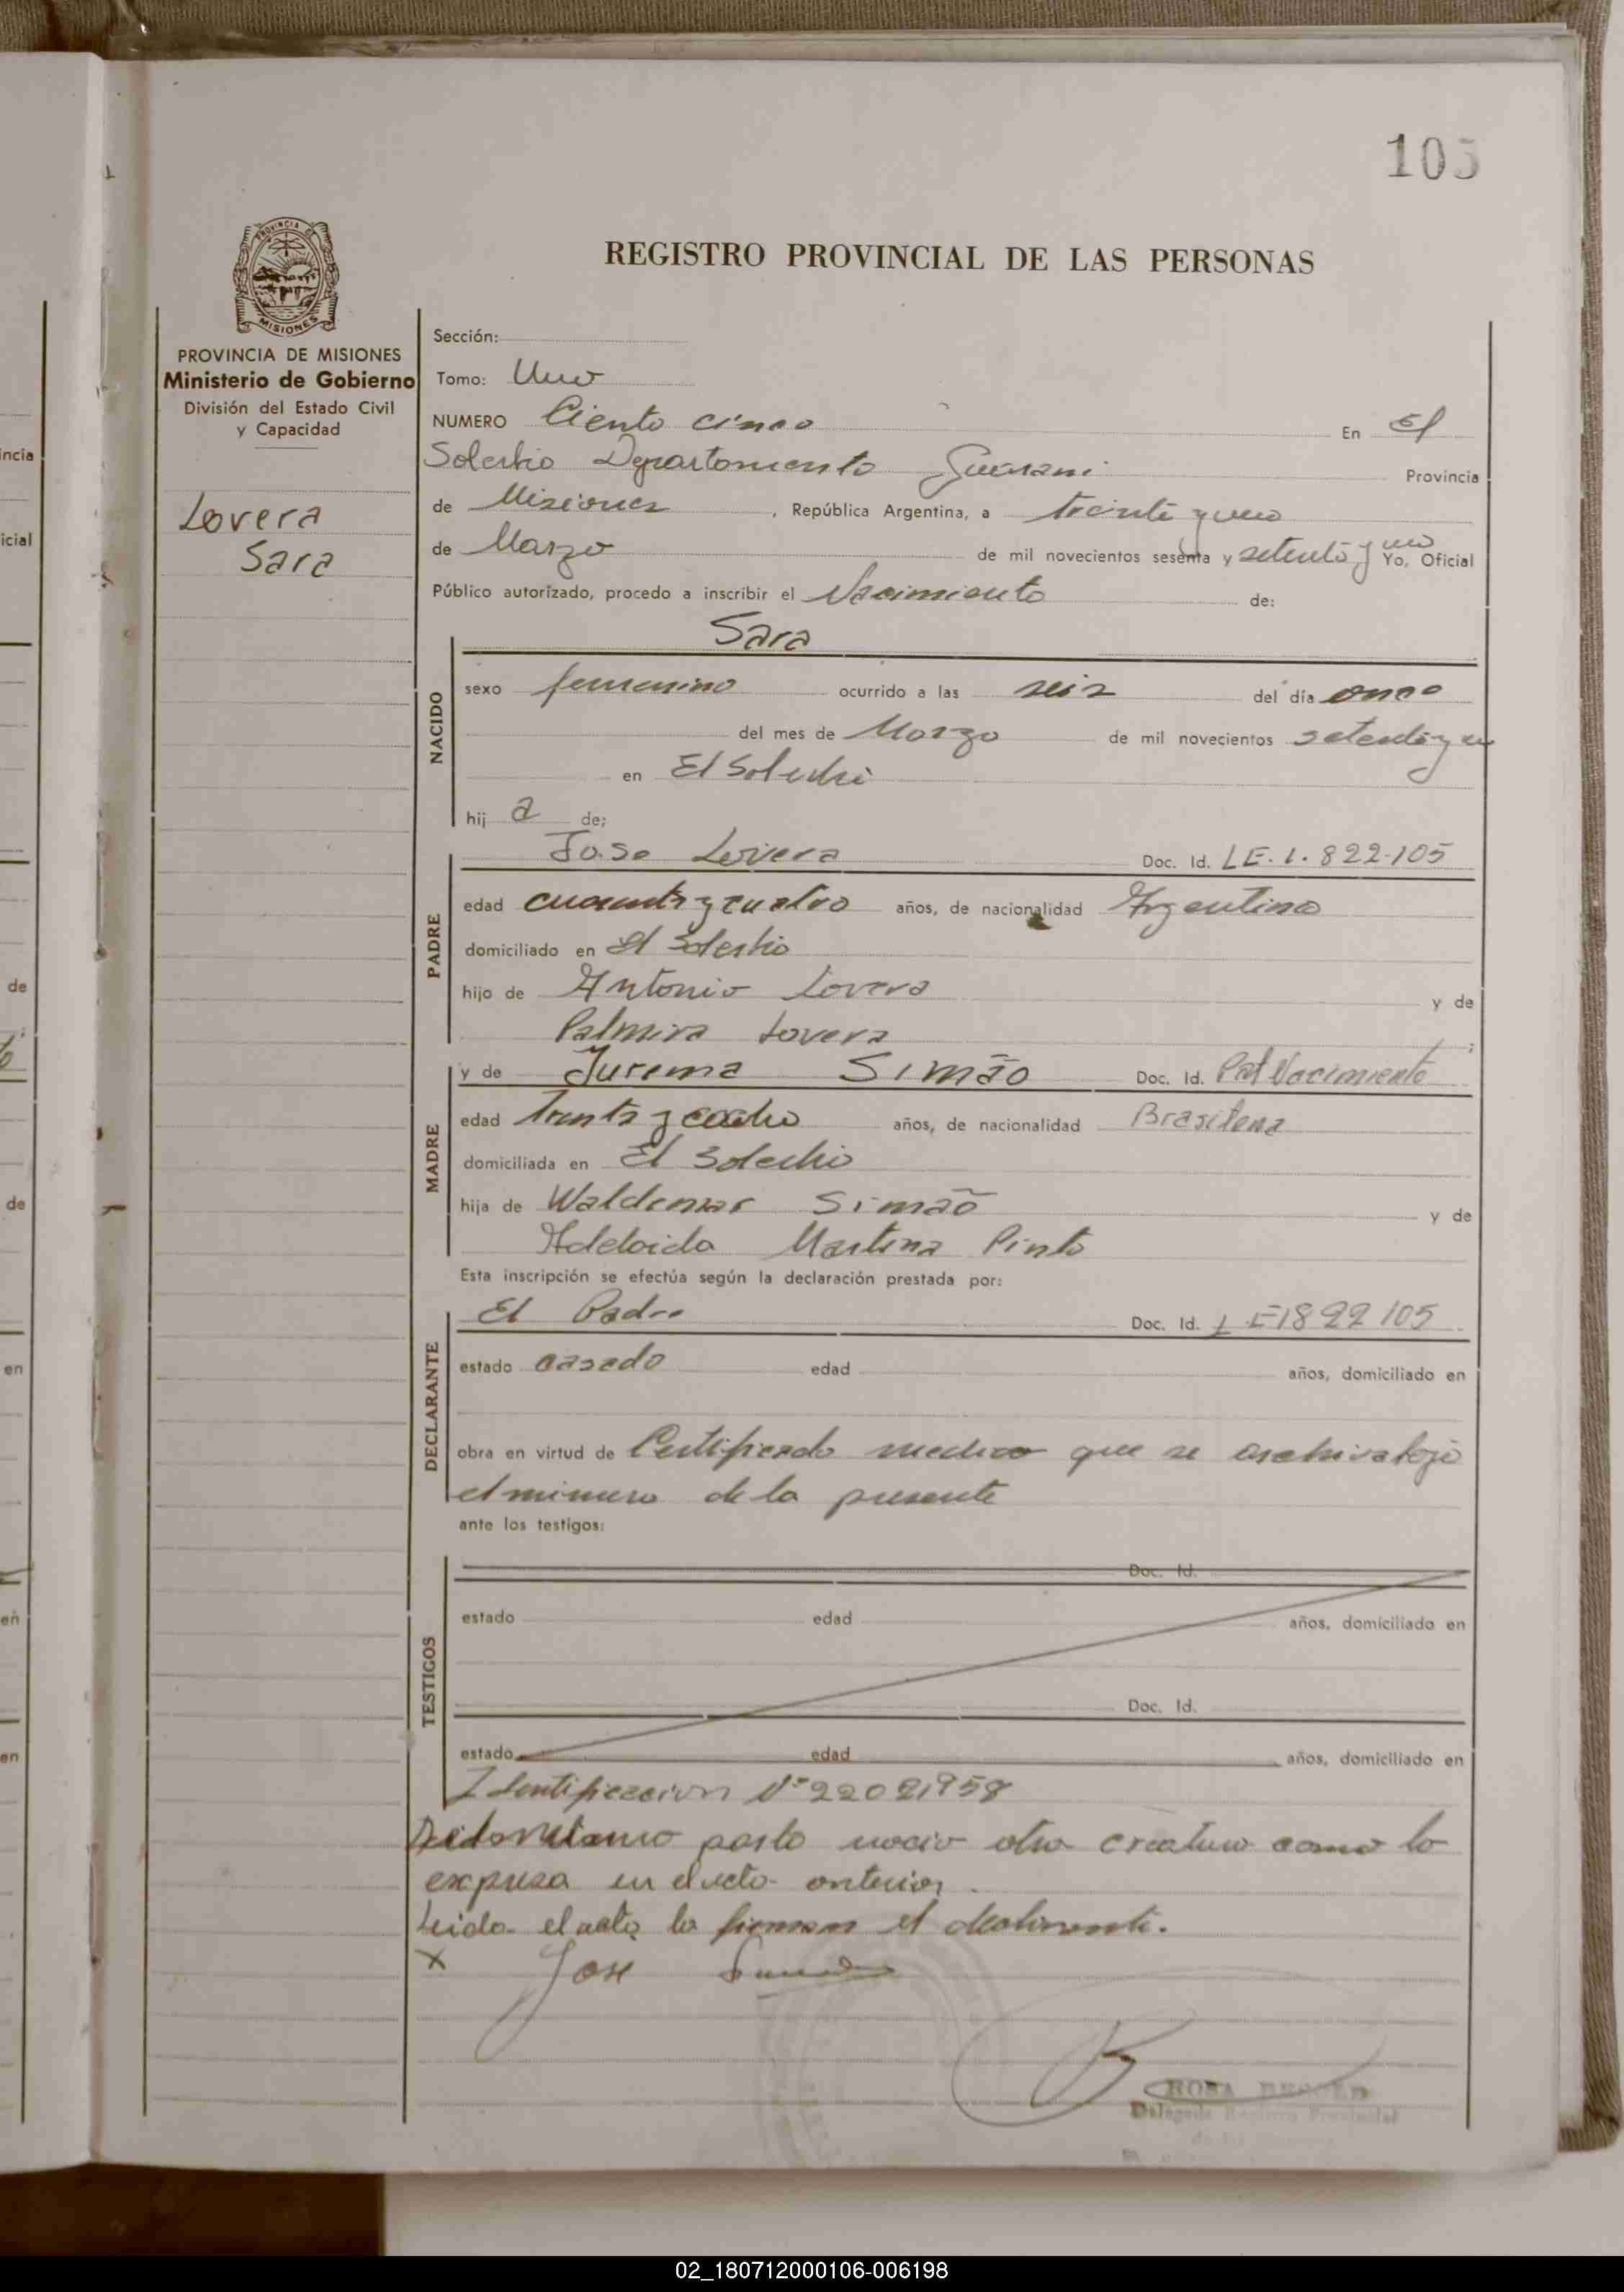 105
REGISTRO PROVINCIAL DE LAS PERSONAS
PROVINCIA DE
MISIONES
PROVINCIA DE MISIONES
Ministerio de Gobierno
División del Estado Civil
y Capacidad
Lovera
Sara
Sección:
Tomo: Uno
NUMERO Ciento cinco En El
Soberbio Departamento Guarani Provincia
de Misiones, República Argentina, a treinta y uno
de Marzo de mil novecientos sesenta y setenta y uno Yo, Oficial
Público autorizado, procedo a inscribir el Nacimiento de:
NACIDO
Sara
sexo femenino ocurrido a las seis del día once
del mes de Marzo de mil novecientos setenta y un
en El Soberbio
hij a de;
PADRE
Jose Lovera Doc. Id. LE. 1.822.105
edad cuarenta y cuatro años, de nacionalidad Argentino
domiciliado en El Soberbio
hijo de Antonio Lovera y de
Palmira Lovera ;
MADRE
y de Jurema Simão Doc. Id. Nacimiento
edad años, de nacionalidad Brasilena
domiciliada en El Soberbio
hija de Waldemar Simão y de
Adelaida Martina Pinto
Esta inscripción se efectúa según la declaración prestada por:
DECLARANTE
El Padre Doc. Id. LE 1822105
estado casado edad años, domiciliado en
obra en virtud de Certificado medico que se archiva bajo
el numero de la presente
ante los testigos:
TESTIGOS
Doc. Id.
estado edad años, domiciliado en
Doc. Id.
estado edad años, domiciliado en
Identificacion Nº 22021958
parto nacio otra creatura como lo
expresa en el acto anterior.
Leida el acta la firman el declarante.
x Jose
ROSA
Delegada Registro Provincial
02_180712000106-006198